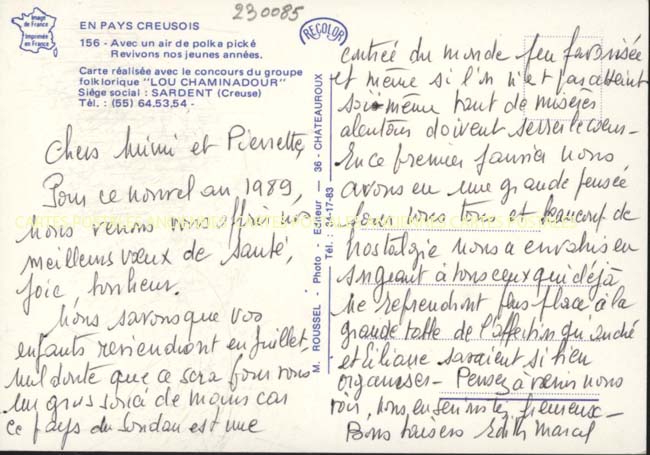 230085
Image
de France
Imprimée
en France
EN PAYS CREUSOIS
156 - Avec un air de polka pické
Revivons nos jeunes années.
Carte réalisée avec le concours du groupe
folklorique "LOU CHAMINADOUR"
Siège social : SARDENT (Creuse)
Tél. : (55) 64.53,54 -
RECOLOR
M. ROUSSEL - Photo - Editeur — 36 - CHATEAUROUX
Tél. : 34-17-83
Chers Mimi et Pierrette,
Pour ce nouvel an 1989,
nous venons vous offrir nos
meilleurs vœux de santé,
joie, bonheur.
Nous savons que vos
enfants reviendront en juillet,
nul doute que ce sera pour vous
un gros souci de moins car
ce pays du Soudan est une
contrée du monde peu favorisée
et même si l'on n'est pas atteint
soi-même tant de misères
alentours doivent serrer le cœur -
En ce premier janvier nous
avons eu une grande pensée
pour vous tous et beaucoup de
nostalgie nous a envahis en
songeant à tous ceux qui déjà
ne reprendront plus place à la
grande table de l'affection qu'André
et Liliane savaient si bien
organiser - Pensez à venir nous
voir, nous en serions très heureux -
Bons baisers Edith Marcel
CARTES POSTALES ANCIENNES